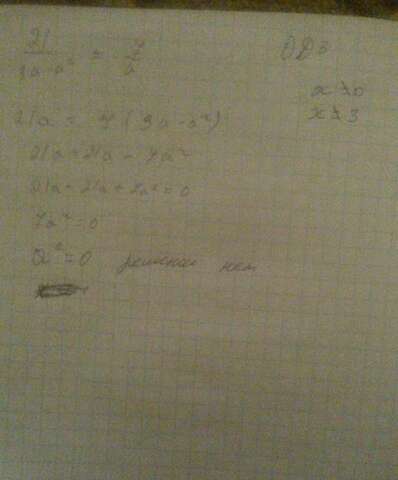 21/(3a-a²) = 7/a
ОДЗ
a ≠ 0
x ≠ 3
21a = 7(3a-a²)
21a = 21a - 7a²
21a - 21a + 7a² = 0
7a² = 0
a² = 0 решений нет